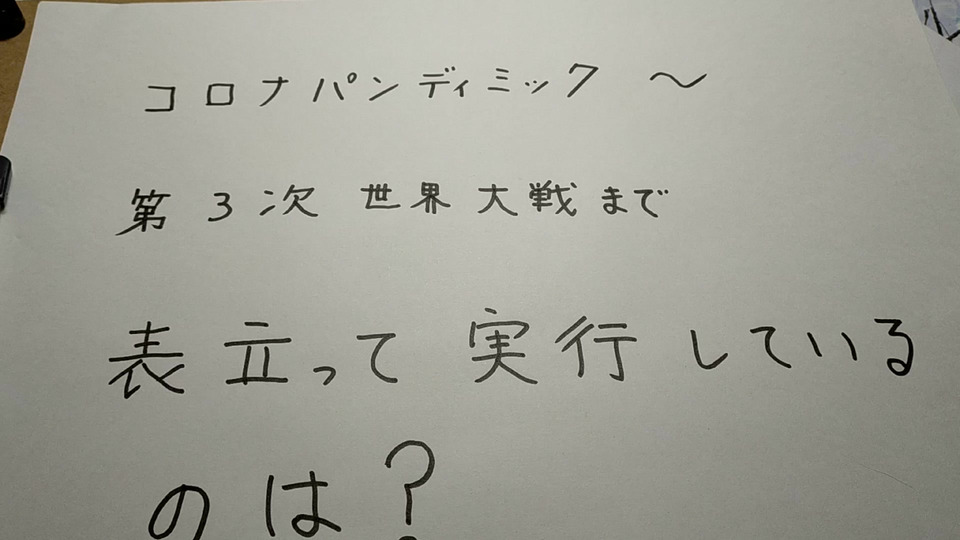 コロナパンディミック 〜
第3次世界大戦まで
表立って実行している
のは?